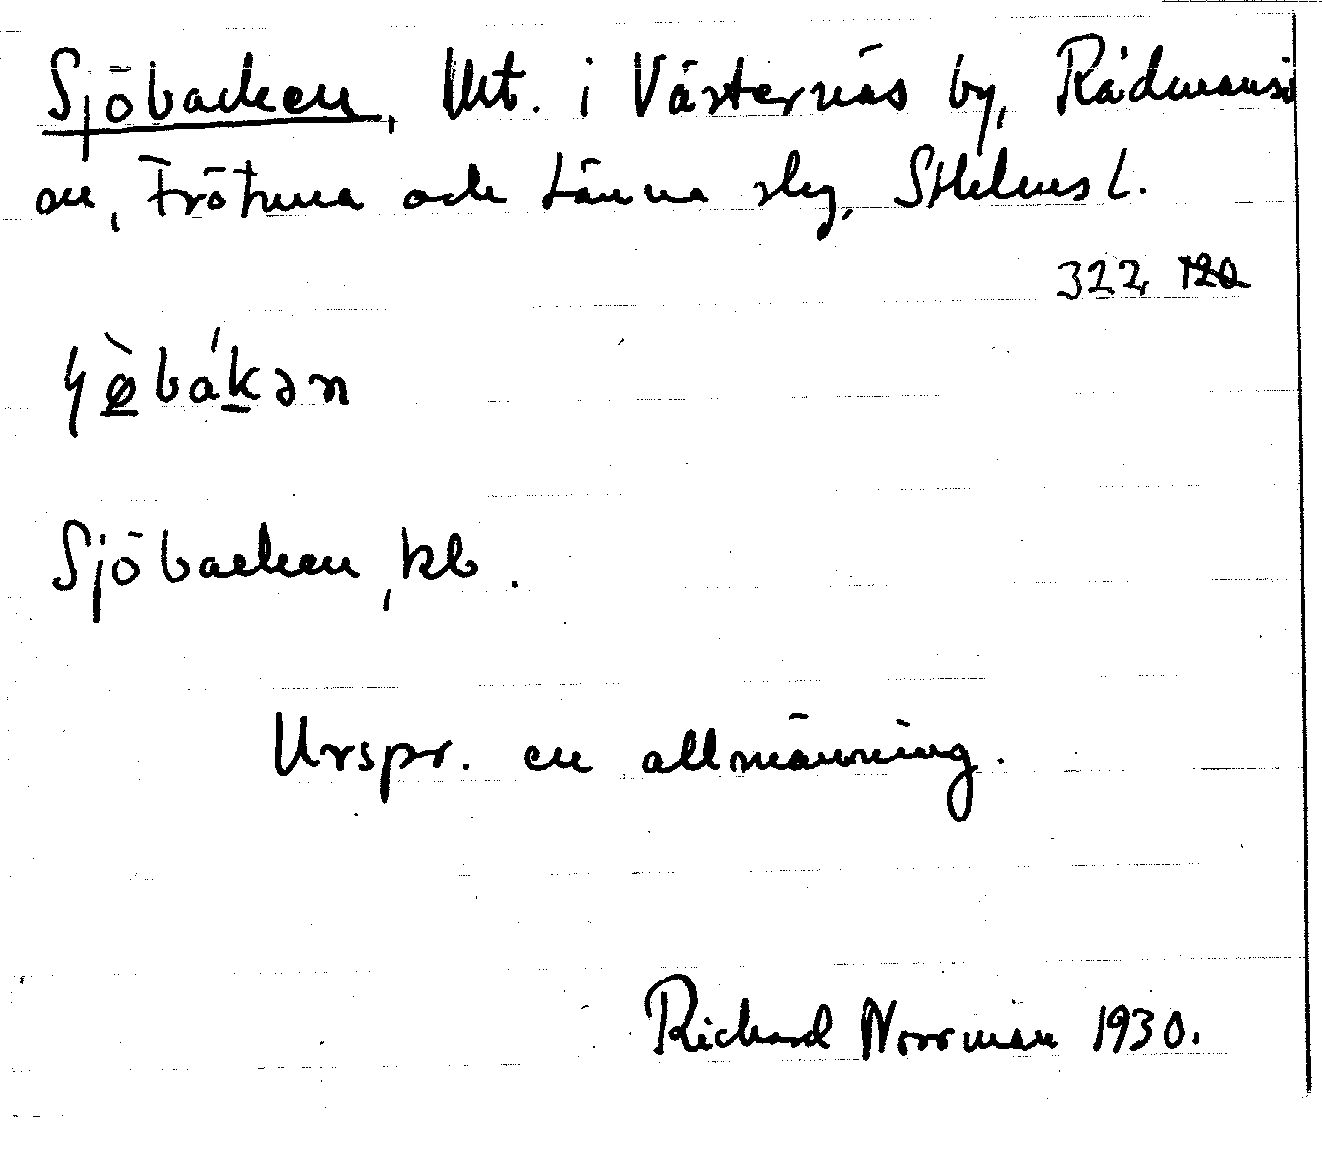 Sjöbacken, Utt. i Västernäs by, Rådmansö
on, Frötuna och Länna slg, Sthlms l.
322, 120
Sjöbacken, kb.
Urspr. en allmänning.
Richard Norrman 1930.